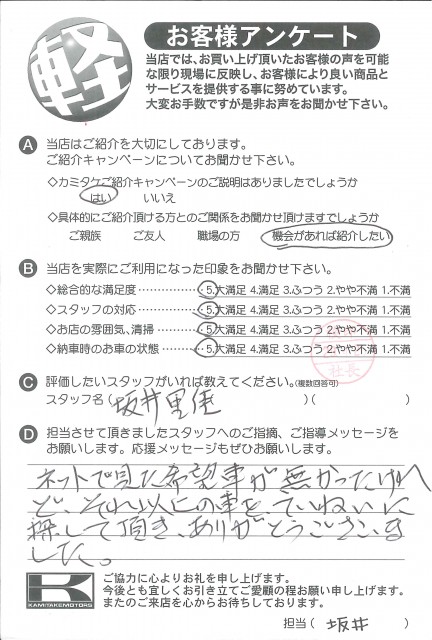 軽
お客様アンケート
当店では、お買い上げ頂いたお客様の声を可能
な限り現場に反映し、お客様により良い商品と
サービスを提供する事に努めています。
大変お手数ですが是非お声をお聞かせ下さい。
A 当店はご紹介を大切にしております。
ご紹介キャンペーンについてお聞かせ下さい。
◇カミタケご紹介キャンペーンのご説明はありましたでしょうか
はい いいえ
◇具体的にご紹介頂ける方とのご関係をお聞かせ頂けますでしょうか
ご親族 ご友人 職場の方 機会があれば紹介したい
B 当店を実際にご利用になった印象をお聞かせ下さい。
◇総合的な満足度 5.大満足 4.満足 3.ふつう 2.やや不満 1.不満
◇スタッフの対応 5.大満足 4.満足 3.ふつう 2.やや不満 1.不満
◇お店の雰囲気、清掃 5.大満足 4.満足 3.ふつう 2.やや不満 1.不満
◇納車時のお車の状態 5.大満足 4.満足 3.ふつう 2.やや不満 1.不満
社長
C 評価したいスタッフがいれば教えてください。(複数回答可)
スタッフ名(坂井里佳 )( )
D 担当させて頂きましたスタッフへのご指摘、ご指導メッセージを
お願いします。応援メッセージもぜひお願いします。
ネットで見た希望車が無かったけれ
ど、それ以上の車を、ていねいに
探して頂き、ありがとうございま
した。
K
KAMITAKE MOTORS
ご協力に心よりお礼を申し上げます。
今後とも宜しくお引き立てご愛顧の程お願い申し上げます。
またのご来店を心からお待ちしております。
担当( 坂井 )